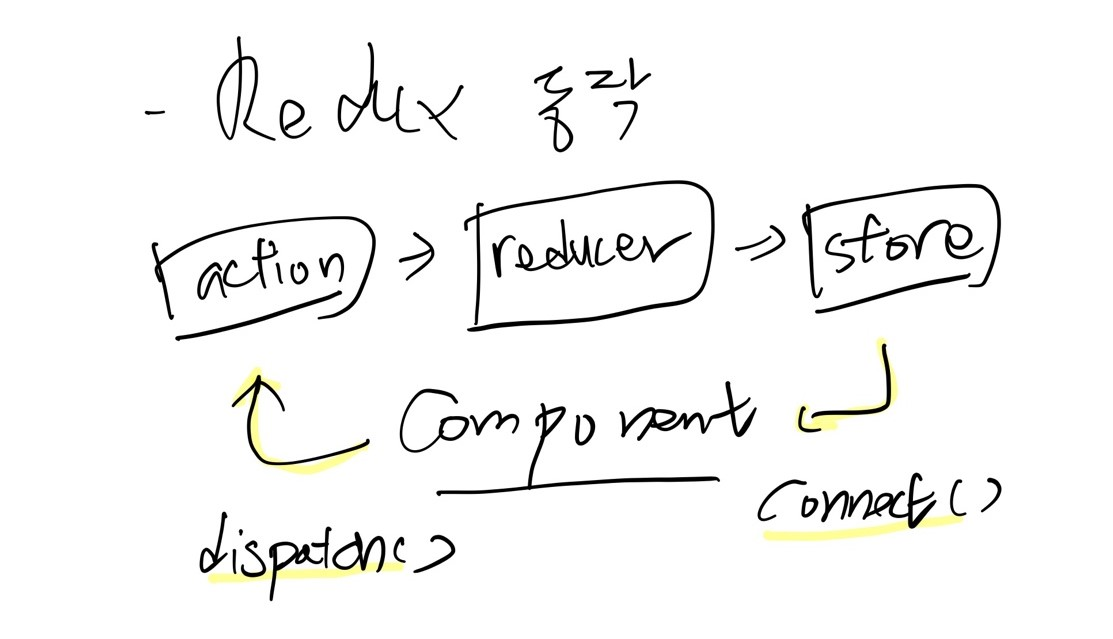 - Redux 흐름
action → reducer → store
Component
connect()
dispatch()